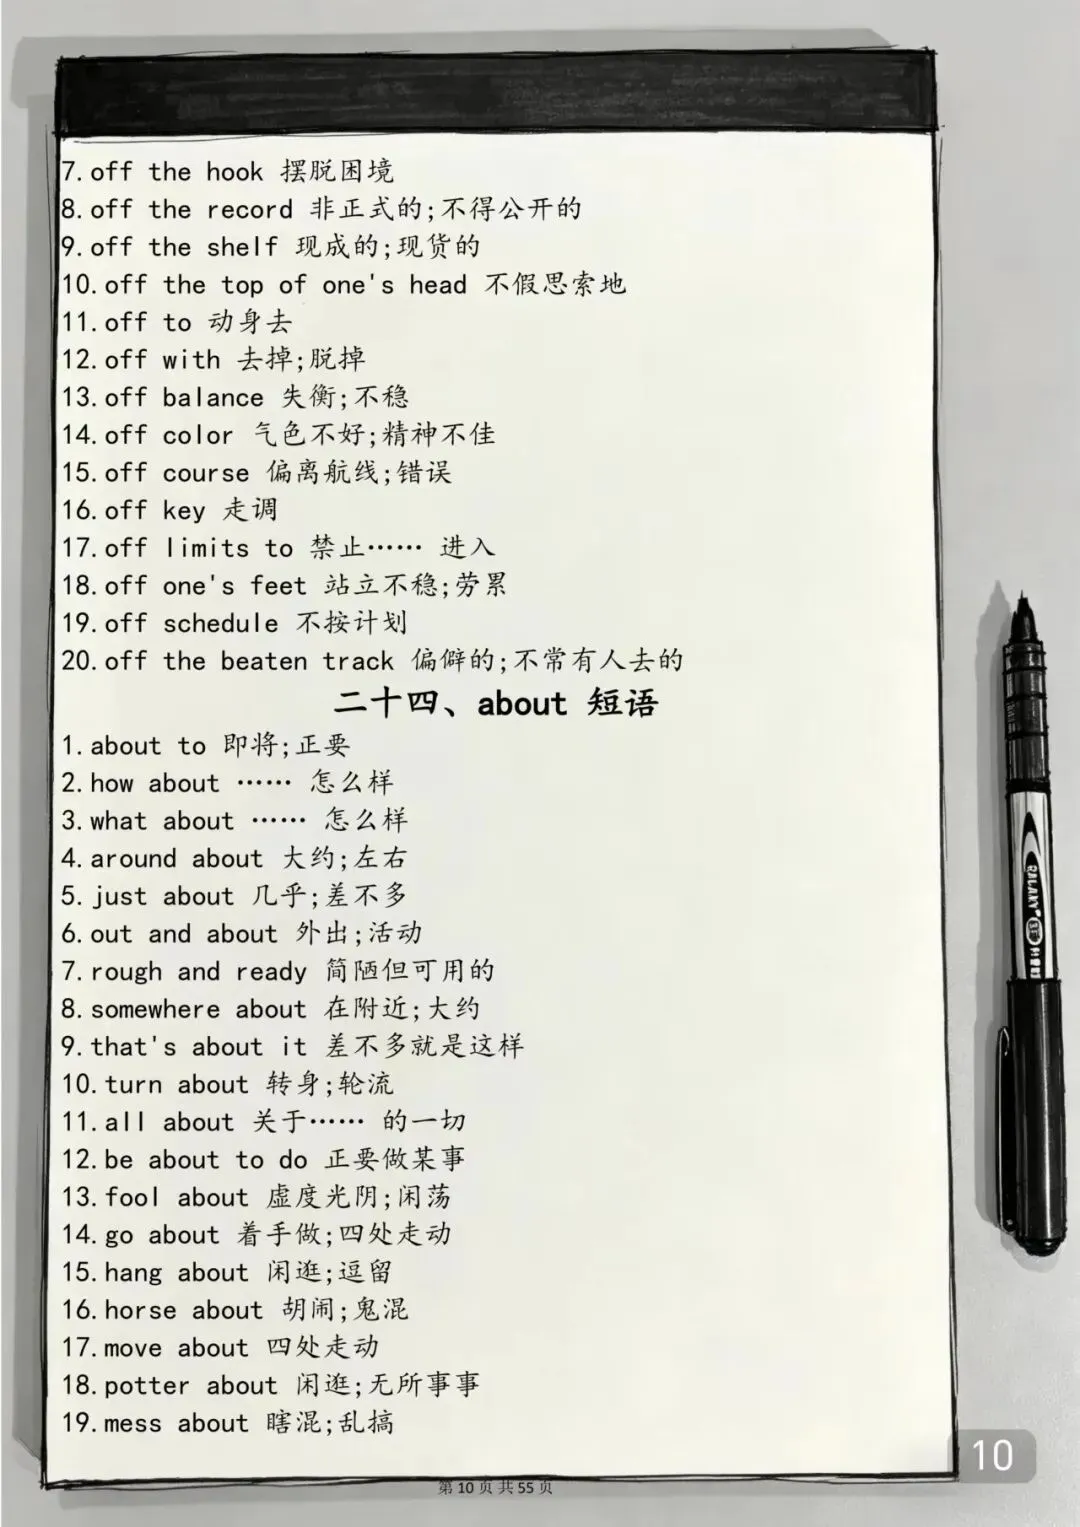 7.off the hook 摆脱困境
8.off the record 非正式的;不得公开的
9.off the shelf 现成的;现货的
10.off the top of one's head 不假思索地
11.off to 动身去
12.off with 去掉;脱掉
13.off balance 失衡;不稳
14.off color 气色不好;精神不佳
15.off course 偏离航线;错误
16.off key 走调
17.off limits to 禁止…… 进入
18.off one's feet 站立不稳;劳累
19.off schedule 不按计划
20.off the beaten track 偏僻的;不常有人去的
二十四、about 短语
1.about to 即将;正要
2.how about …… 怎么样
3.what about …… 怎么样
4.around about 大约;左右
5.just about 几乎;差不多
6.out and about 外出;活动
7.rough and ready 简陋但可用的
8.somewhere about 在附近;大约
9.that's about it 差不多就是这样
10.turn about 转身;轮流
11.all about 关于…… 的一切
12.be about to do 正要做某事
13.fool about 虚度光阴;闲荡
14.go about 着手做;四处走动
15.hang about 闲逛;逗留
16.horse about 胡闹;鬼混
17.move about 四处走动
18.potter about 闲逛;无所事事
19.mess about 瞎混;乱搞
10
第 10 页 共 55 页